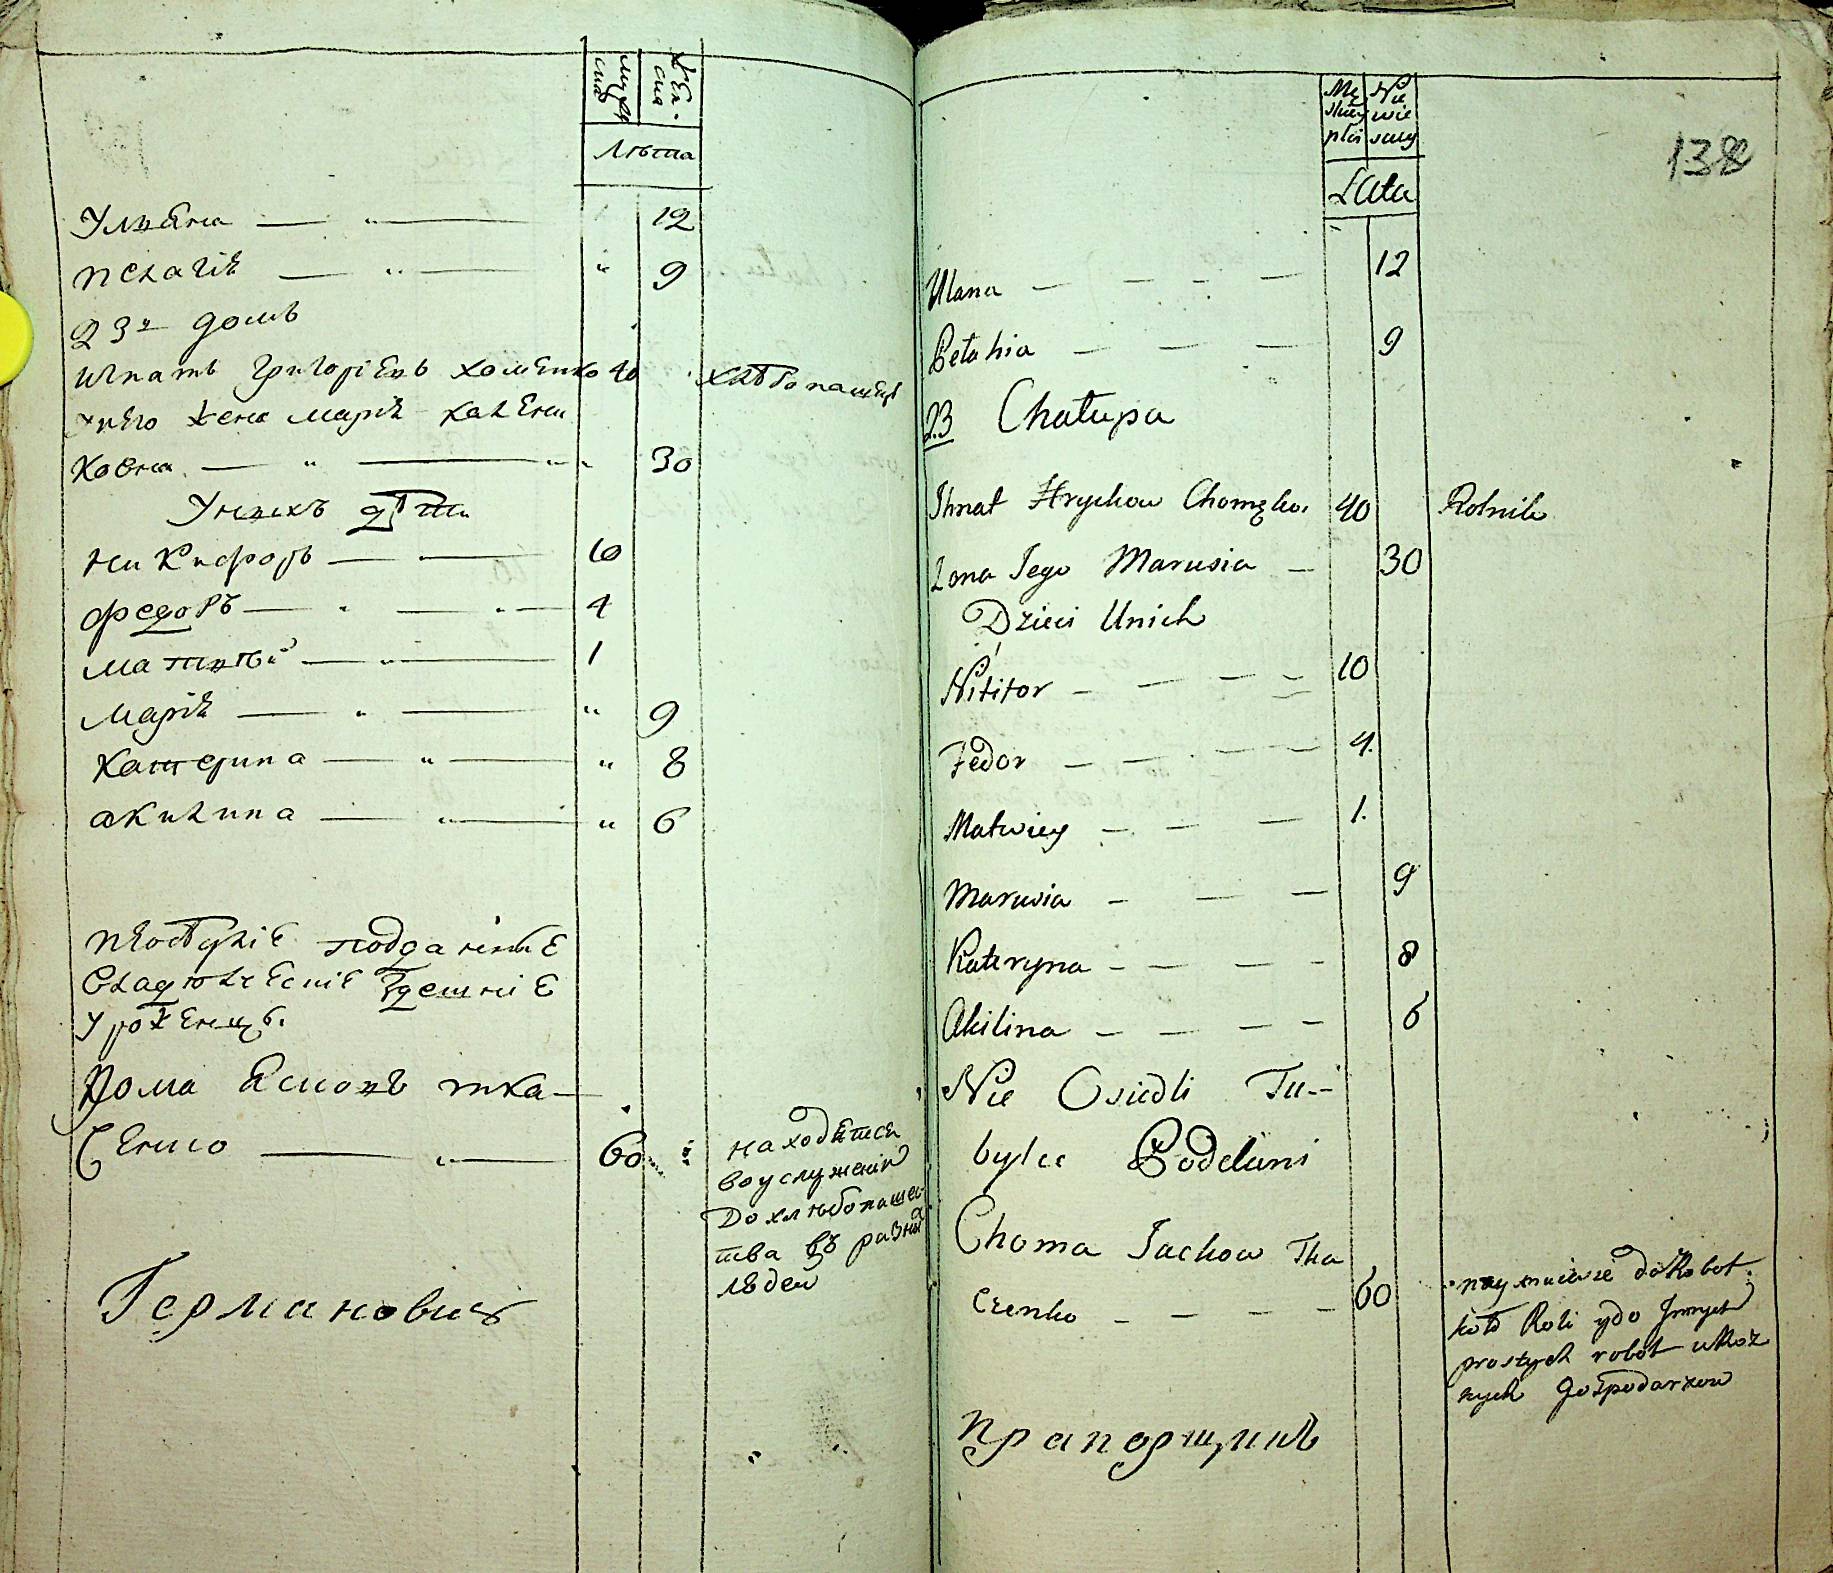 мужска
женска
Лѣта
Ульяна — " — 12
Пелагія — " — " 9
23й домъ
Игнатъ Григоріевъ Хоменко 40 хлѣбопашецъ
унего жена Марія Калени
ковна — " — " 30
Унихъ дѣти
Никифоръ — 10
Федоръ — 4
Матвѣй — " — 1
Марія — " — " 9
Катерина — " — " 8
Акилина — " — " 6
подданніе
владюлческіе здешніе
уроженцы.
Хома Яковъ тка—
ченко — " — 60
находится
воуслуженіи
До хлюбопашес
тва въ разных
людей
Германовичъ
138
Męskiey płci
Niewieściey
Lata
Ulana — — — — 12
Pelahia — — — 9
23 Chałupa
Ihnat Hryckow Chomęko. 40 Rolnik
Zona Jego Marusia — 30
Dzieci Unich
Nikifor — — — — 10
Fedor — — — — 4.
Matwiey — — — 1.
Marusia — — — 9
Kateryna — — — — 8
Akilina — — — — 6
Nie Osiedli Tu—
bylce Poddani
Choma Jackow Tka
czenko — — — — 60
naymuiesie do Robot
koło Roli ydo Jnnych
prostych robot uRoż
nych Gospodarzow
Прапорщикъ